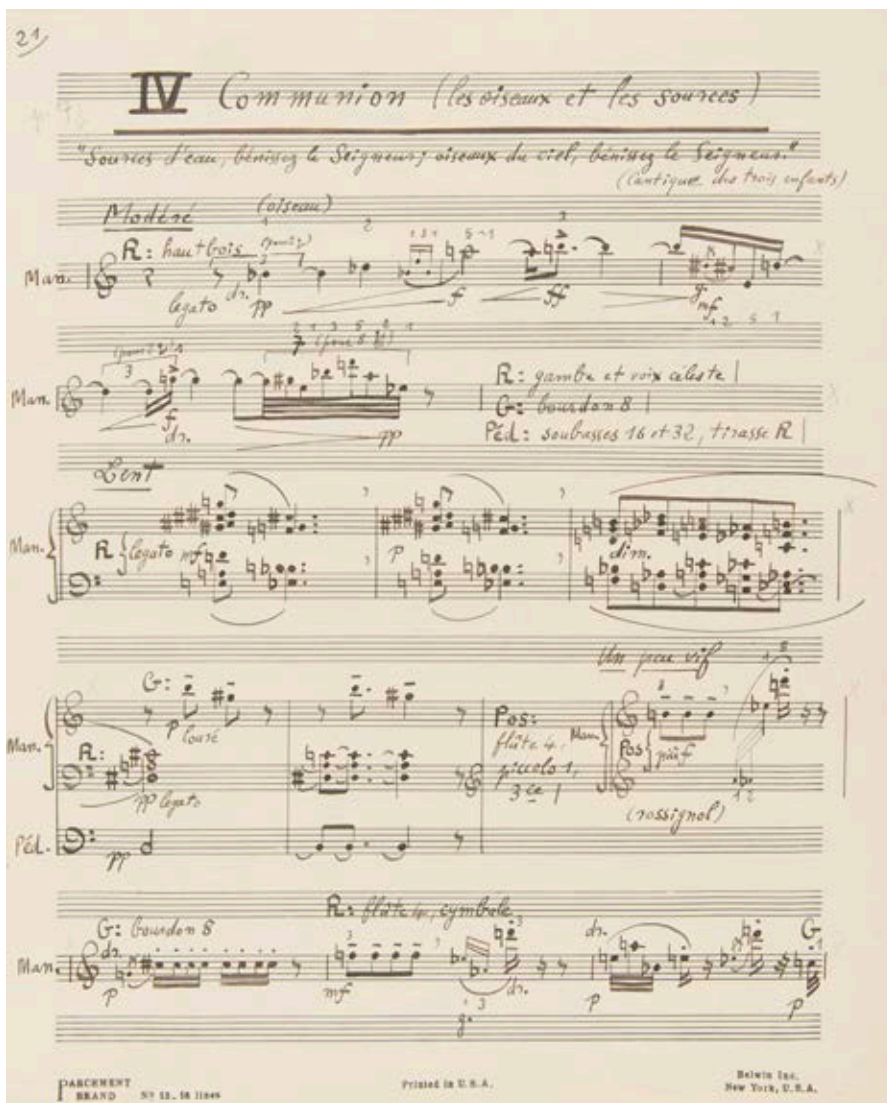 21
IV Communion (les oiseaux et les sources)
"Sources d'eau, bénissez le Seigneur; oiseaux du ciel, bénissez le Seigneur."
(Cantique des trois enfants)
Modéré (oiseau)
R: hautbois
Man.
legato dr. pp f ff g. mf
3 (pour 2
7 (pour 8
Man.
f dr. pp
R: gambe et voix céleste
G: bourdon 8
Péd: soubasses 16 et 32, tirasse R
Lent
Man. R legato mf p dim.
G: p louré
Man. R: pp legato
Péd. pp
Pos: flûte 4, piccolo 1, 3ce
Un peu vif
Man. Pos
(rossignol)
G: bourdon 8 R: flûte 4, cymbale
Man. dr. p mf g. dr. dr. p G p
PARCHMENT BRAND No 12 - 16 lines
Printed in U.S.A.
Belwin Inc.
New York, U.S.A.